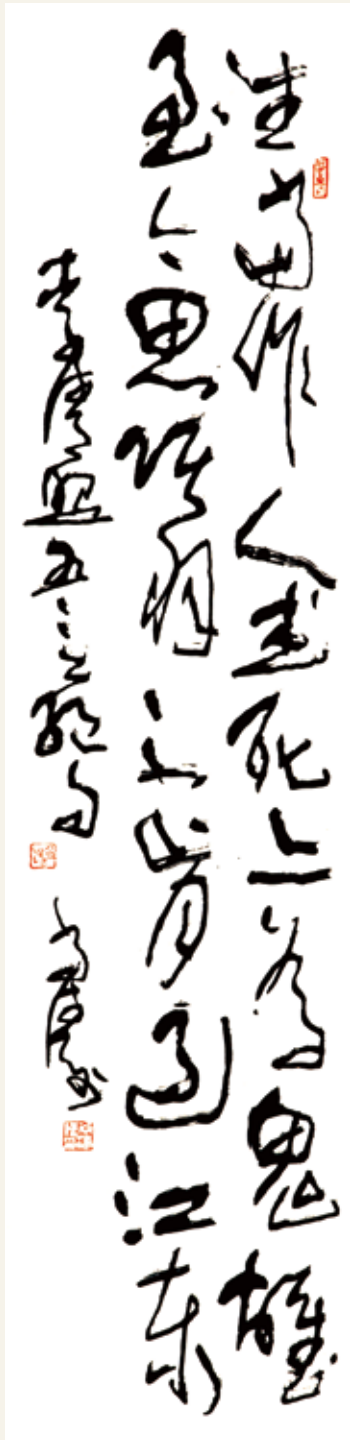 生当作人杰死亦为鬼雄
至今思项羽不肯过江东
李清照五言绝句